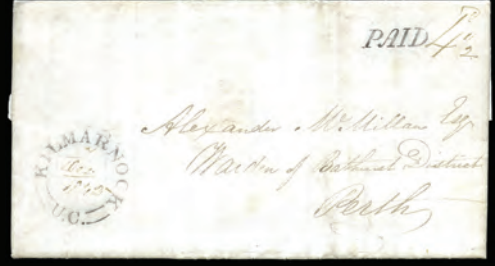 PAID 4½
Alexander McMillan Esq
Warden of Bathurst District
Perth
KILMARNOCK
Dec
U.C.